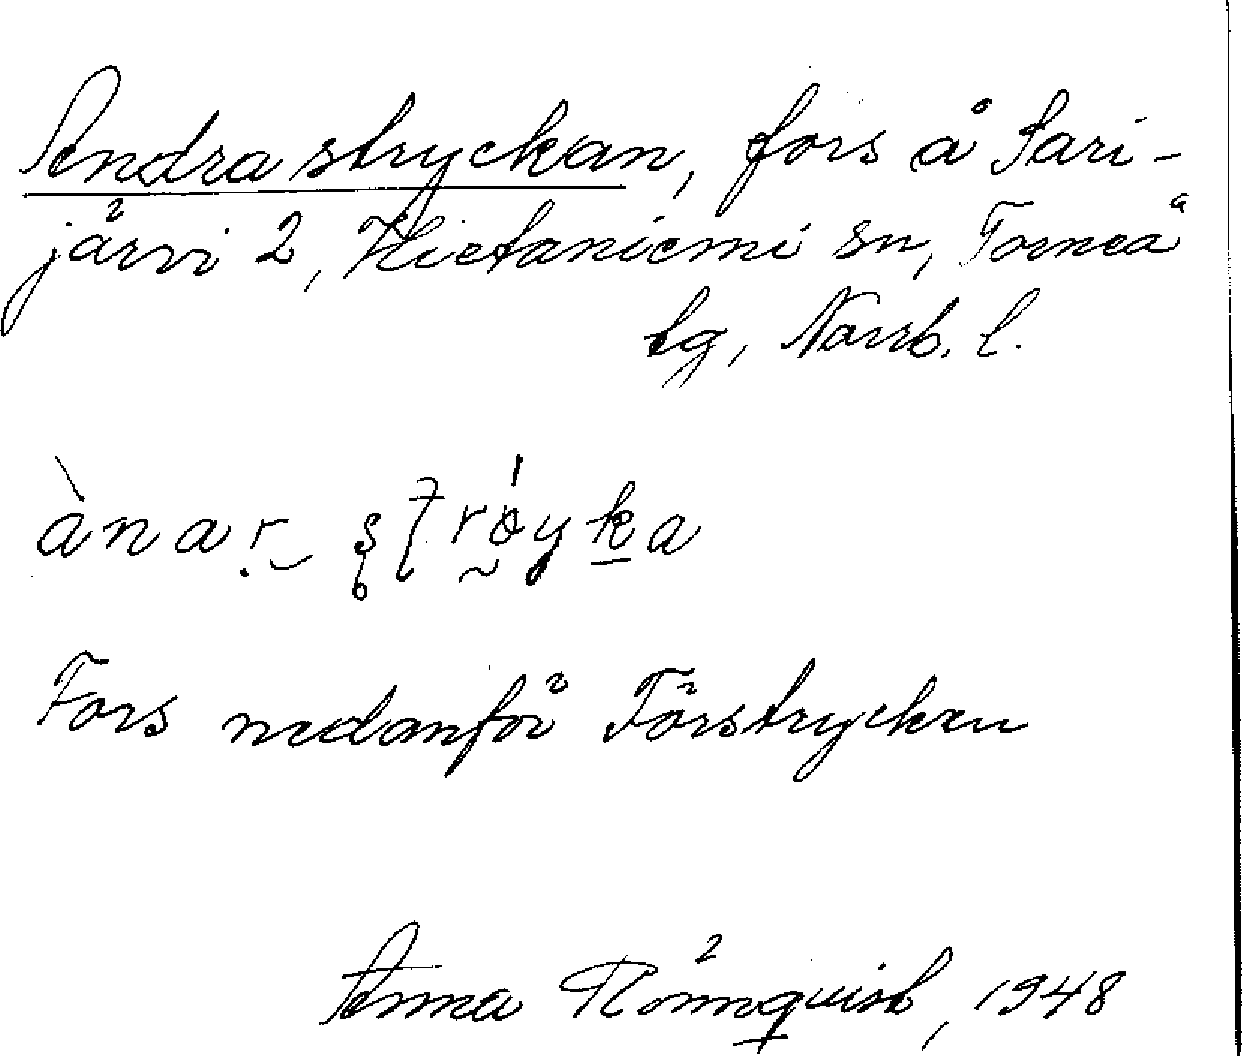 Andra stryckan, fors å Sari-
järvi 2, Hietaniemi sn, Torneå
tg, Norrb. l.
Fors nedanför Förstrycken
Anna Rönnquist, 1948